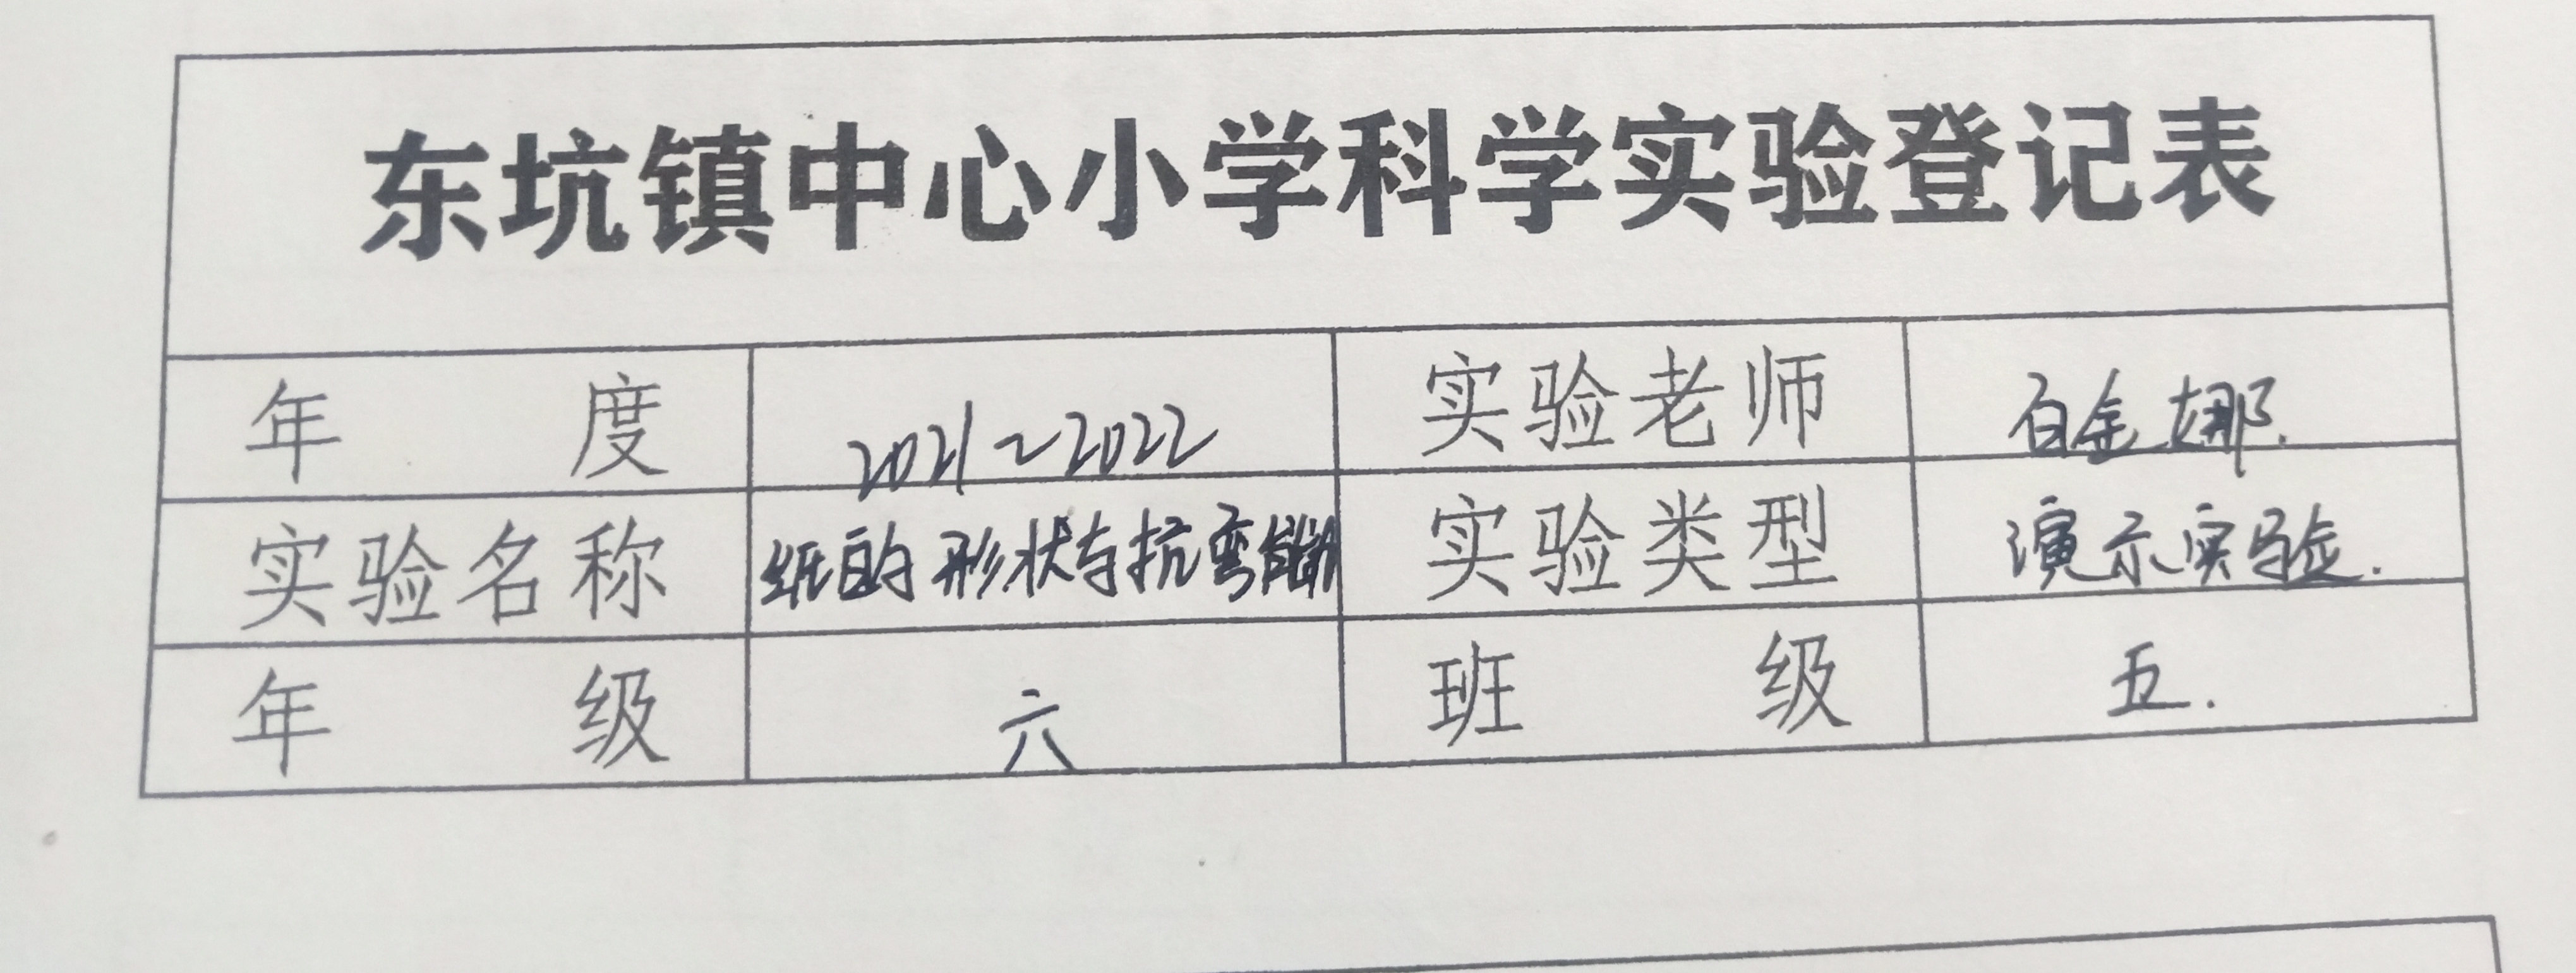 东坑镇中心小学科学实验登记表
年度 2021~2022 实验老师 白金娜.
实验名称 纸的形状与抗弯能力 实验类型 演示实验.
年级 六 班级 五.